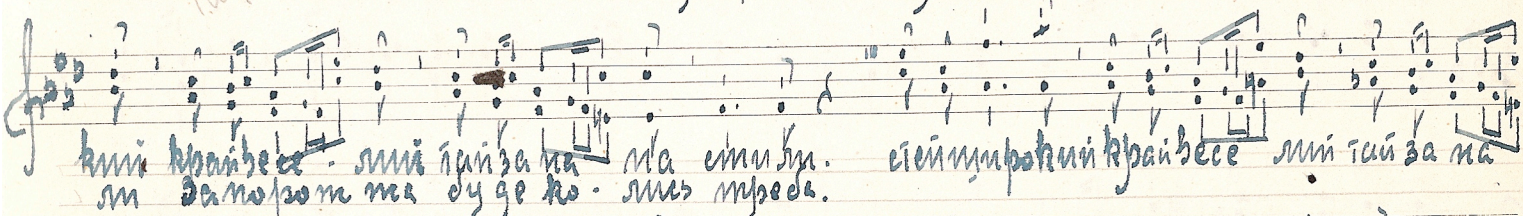 кий край весе - лий тай за па на сти ли. стей широкий край весе лий тай за па
ли запорож та буде ко - лись треба.